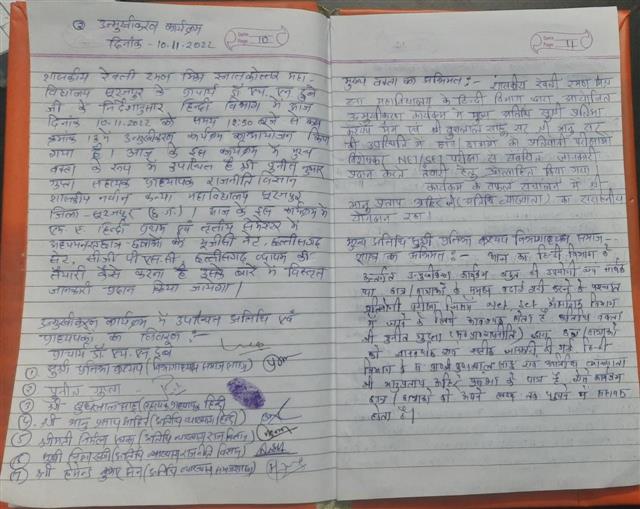 ② उन्मुखीकरण कार्यक्रम
दिनांक - 10.11.2022
10
शासकीय रेवती रमण मिश्र स्नातकोत्तर महा-
विद्यालय सूरजपुर के प्राचार्य डॉ एच. एन. दुबे
जी के निर्देशानुसार हिन्दी विभाग में आज
दिनांक 10.11.2022 को समय 12:30 बजे से कक्ष
क्रमांक 13 में उन्मुखीकरण कार्यक्रम का आयोजन किया
गया है। आज के इस कार्यक्रम में मुख्य
वक्ता के रूप में उपस्थित है श्री पुनीत कुमार
गुप्ता सहायक प्राध्यापक राजनीति विज्ञान
शासकीय नवीन कन्या महाविद्यालय सूरजपुर
जिला - सूरजपुर (छ.ग.)। आज के इस कार्यक्रम में
एम ए हिन्दी प्रथम एवं तृतीय सेमेस्टर में
को यूजीसी नेट, छत्तीसगढ़
सेट, सीजी पी एस सी, छत्तीसगढ़ व्यापम की
तैयारी कैसे करना है इसके बारे में विस्तृत
जानकारी प्रदान किया जायेगा।
उन्मुखीकरण कार्यक्रम में उपस्थित अतिथि एवं
प्राध्यापकों का विवरण:-
प्राचार्य डॉ एच एन दुबे
① सुश्री प्रतिभा कश्यप (विभागाध्यक्ष समाजशास्त्र)
② पुनीत गुप्ता
③ श्री बुधलाल साहू (सहायक प्राध्यापक हिन्दी)
④ श्री भानु प्रताप आहिर (अतिथि व्याख्याता हिन्दी)
⑤ श्रीमती निर्मला (अतिथि व्याख्याता
⑥ सुश्री (अतिथि व्याख्याता राजनीति विज्ञान)
⑦ श्री हेमन्त कुमार (अतिथि व्याख्याता समाजशास्त्र)
11
मुख्य वक्ता का अभिमत:- शासकीय रेवती रमण मिश्र
महाविद्यालय के हिन्दी विभाग द्वारा आयोजित
उन्मुखीकरण कार्यक्रम में मुख्य अतिथि सुश्री प्रतिभा
कश्यप मैम एवं श्री बुधलाल साहू सर श्री भानु सर
की उपस्थिति में छात्र छात्राओं को प्रतियोगी परीक्षाओं
विशेषकर NET/SET परीक्षा से संबंधित जानकारी
प्रदान करते तैयारी हेतु प्रोत्साहित किया गया
कार्यक्रम के सफल संचालन में श्री
भानु प्रताप आहिर जी (अतिथि व्याख्याता) का सराहनीय
योगदान रहा।
मुख्य अतिथि सुश्री प्रतिभा कश्यप विभागाध्यक्ष समाज-
शास्त्र का अभिमत:- आज का हिन्दी विभाग के
अन्तर्गत उन्मुखीकरण कार्यक्रम बहुत ही उपयोगी एवं सार्थक
था छात्र/छात्राओं के करने के पश्चात
प्रतियोगी परीक्षा जिसमें NET SET
में जाने के लिए आवश्यक होता है
श्री पुनीत गुप्ता (सहा. प्राध्यापक) द्वारा छात्र/छात्राओं
को आवश्यक एवं सटीक जानकारी दी गई हिन्दी
विभाग के बुधलाल साहू एवं अतिथि व्याख्याता
श्री भानुप्रताप आहिर के पात्र है ऐसे कार्यक्रम
छात्र/छात्राओं को अपने लक्ष्य तक पहुंचने में सहायक
होता है।